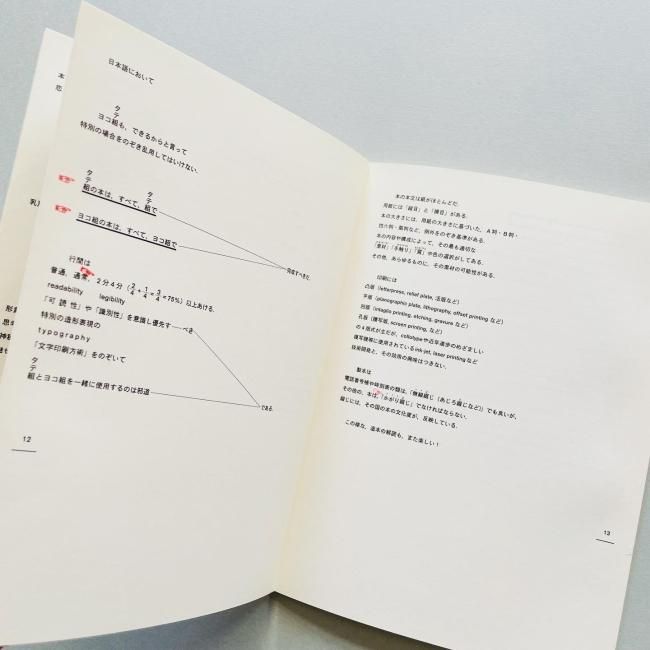 日本語において
タテ
ヨコ組も、できるからと言って
特別の場合をのぞき乱用してはいけない.
タテ タテ
組の本は、すべて、組で
ヨコ組の本は、すべて、ヨコ組で
完成すべきだ.
行間は
普通、通常、2分4分 (2/4+1/4=3/4<75%) 以上あける.
readability legibility
「可読性」や「識別性」を意識し優先す──べき
特別の造形表現の
typography
「文字印刷方術」をのぞいて
タテ
組とヨコ組を一緒に使用するのは邪道
である.
12
本の本文は紙がほとんどだ.
用紙には「縦目」と「横目」がある.
本の大きさには、用紙の大きさに基づいた、A判・B判・
四六判・菊判など、例外をのぞき基準がある.
本の内容や構成によって、その最も適切な
「素材」「手触り」「質」や色の選択がしてある.
その他、あらゆるものに、その素材の可能性がある.
印刷には
凸版 (letterpress, relief plate, 活版など)
平版 (planographic plate, lithography, offset printing など)
凹版 (intaglio printing, etching, gravure など)
孔版 (謄写版, screen printing, など)
の4版式が主だが、collotypeや近年進歩のめざましい
複写機等に使用されているink-jet, laser printingなど
技術開発と、その技術の興味はつきない.
製本は
電話番号帳や時刻表の類は、「無線綴じ (あじろ綴じなど)」でも良いが、
その他の、本は、「かがり綴じ」でなければならない.
綴じには、その国の本の文化度が、反映している.
この様な、造本の解読も、また楽しい！
13